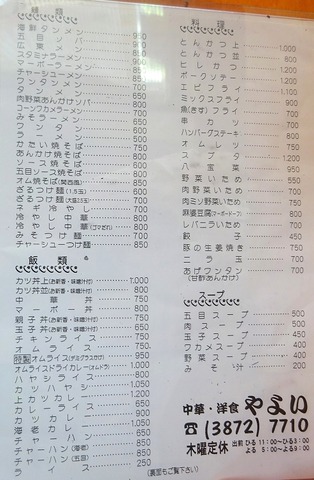 麺類
海鮮タンメン 950
五目ソバ 900
広東メン 900
スタミナラーメン
マーボーラーメン
チャーシューメン
ワンタンメン
タンメン
肉野菜あんかけソバ
コーンカメラーメン
みそラーメン
ワンタン
ラーメン
かたい焼そば 750
あんかけ焼そば 800
ソース焼そば
五目ソース焼そば 800
オム焼そば(関西風) 850
ざるつけ麺(1.5玉) 600
ざるつけ麺(大盛2.5玉) 700
ネギ冷やし 700
冷やし中華 800
冷やし中華(ゴマだれ) 800
みそつけ麺 700
チャーシューつけ麺 850
飯類
カツ丼上(お新香・味噌汁付) 1,000
カツ丼並(お新香・味噌汁付) 800
中華丼 750
マーボ丼 800
親子丼(お新香・味噌汁付) 750
玉子丼(お新香・味噌汁付) 650
チキンライス 750
オムライス 750
特製オムライス(デミグラスソース) 950
オムライスドライカレー(オムドラ) 1,050
ハヤシライス 800
カツハヤシ 1,150
上カツカレー 1,200
カレーライス 650
カツカレー 900
海老カレー 1,050
チャーハン 650
チャーハン(海老) 850
チャーハン(五目) 850
ライス 250
(裏面もご覧下さい)
料理
とんかつ上 1,000
とんかつ並 800
ヒレカツ 1,200
ポークソテー 1,200
エビフライ 1,100
ミックスフライ 900
魚(きす)フライ 700
串カツ 700
ハンバーグステーキ 800
オムレツ 750
スブタ 1,200
八宝菜 950
野菜いため 550
肉野菜いため 700
肉ミソ野菜いため 750
麻婆豆腐(マーボードーフ) 800
レバニライため 700
餃子 450
豚の生姜焼き 750
ニラ玉 700
あげワンタン(甘酢あんかけ) 700
スープ
五目スープ 500
肉スープ 500
玉子スープ 400
ワカメスープ 400
野菜スープ 400
みそ汁 200
中華・洋食 やよい
☎(3872)7710
木曜定休 出前 ひる 11:00〜ひる3:00
よる 5:00〜よる9:00